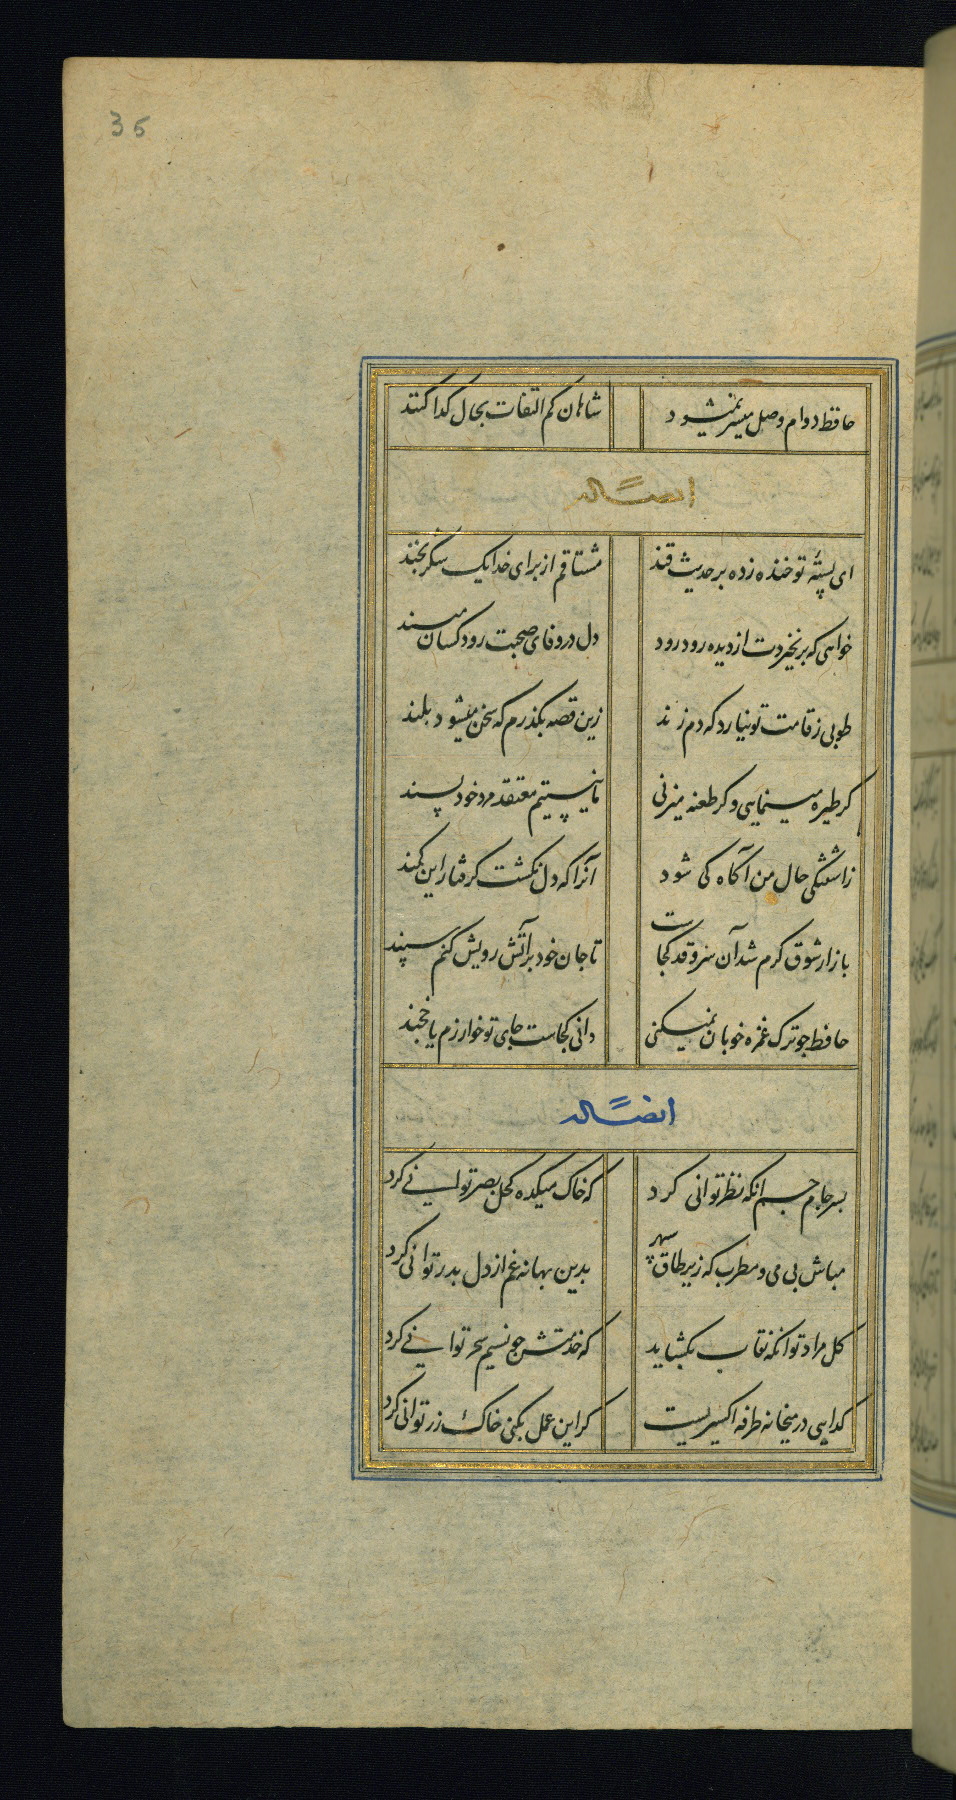 35
حافظ دوام وصل میسر نمیشود شاهان کم التفات بحال کدا کنند
ایضاً له
ای پستهٔ تو خنده زده بر حدیث قند مشتاقم از برای خدا یک شکر بخند
خواهی که بر نخیزدت از دیده رود رود دل در وفای صحبت رود کسان مبند
طوبی ز قامت تو نیارد که دم زند زین قصه بکذرم که سخن میشود بلند
کر طیره مینمایی و کر طعنه میزنی ما نیستیم معتقد مرد خود پسند
ز آشفتکی حال من آکاه کی شود آنرا که دل نکشت کرفتار این کمند
بازار شوق کرم شد آن سرو قد کجاست تا جان خود بر آتش رویش کنم سپند
حافظ چو ترک غمزه خوبان نمیکنی دانی کجاست جای تو خوارزم یا خجند
ایضاً له
بسر جام جم انکه نظر توانی کرد که خاک میکده کحل بصر توانی کرد
مباش بی می و مطرب که زیر طاق سپهر بدین بهانه غم از دل بدر توانی کرد
کل مراد تو انکه نقاب بکشاید که خدمتش چو نسیم سحر توانی کرد
کدایی در میخانه طرفه اکسیریست کر این عمل بکنی خاک زر توانی کرد